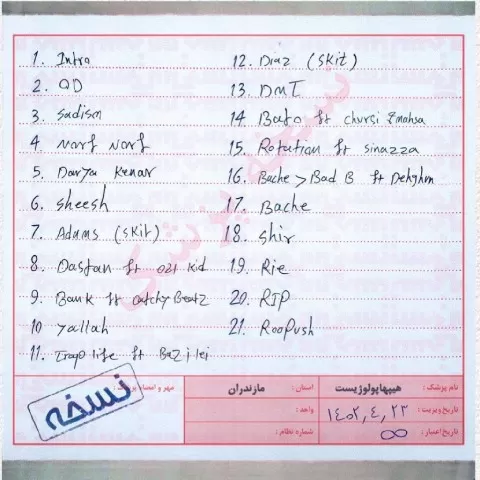 1. Intro
2. QD
3. Sadism
4. Norf Norf
5. Darya Kenar
6. Sheesh
7. Adams (Skit)
8. Dastan ft 021 Kid
9. Bank ft catchyBeatz
10 Yallah
11. Trap life ft Bazilei
12. Diaz (Skit)
13. DMT
14. Bato ft chvrsi & mahsa
15. Rotation ft sinazza
16. Bache > Bad B ft Dehghan
17. Bache
18. Shir
19. Rie
20. RIP
21. RooPush
نسخه پزشکی
نام پزشک: هیپهاپولوژیست
استان: مازندران
مهر و امضاء پزشک:
تاریخ ویزیت: ۱۴۰۲,۴,۲۳
واحد:
تاریخ اعتبار: ∞
شماره نظام:
نسخه